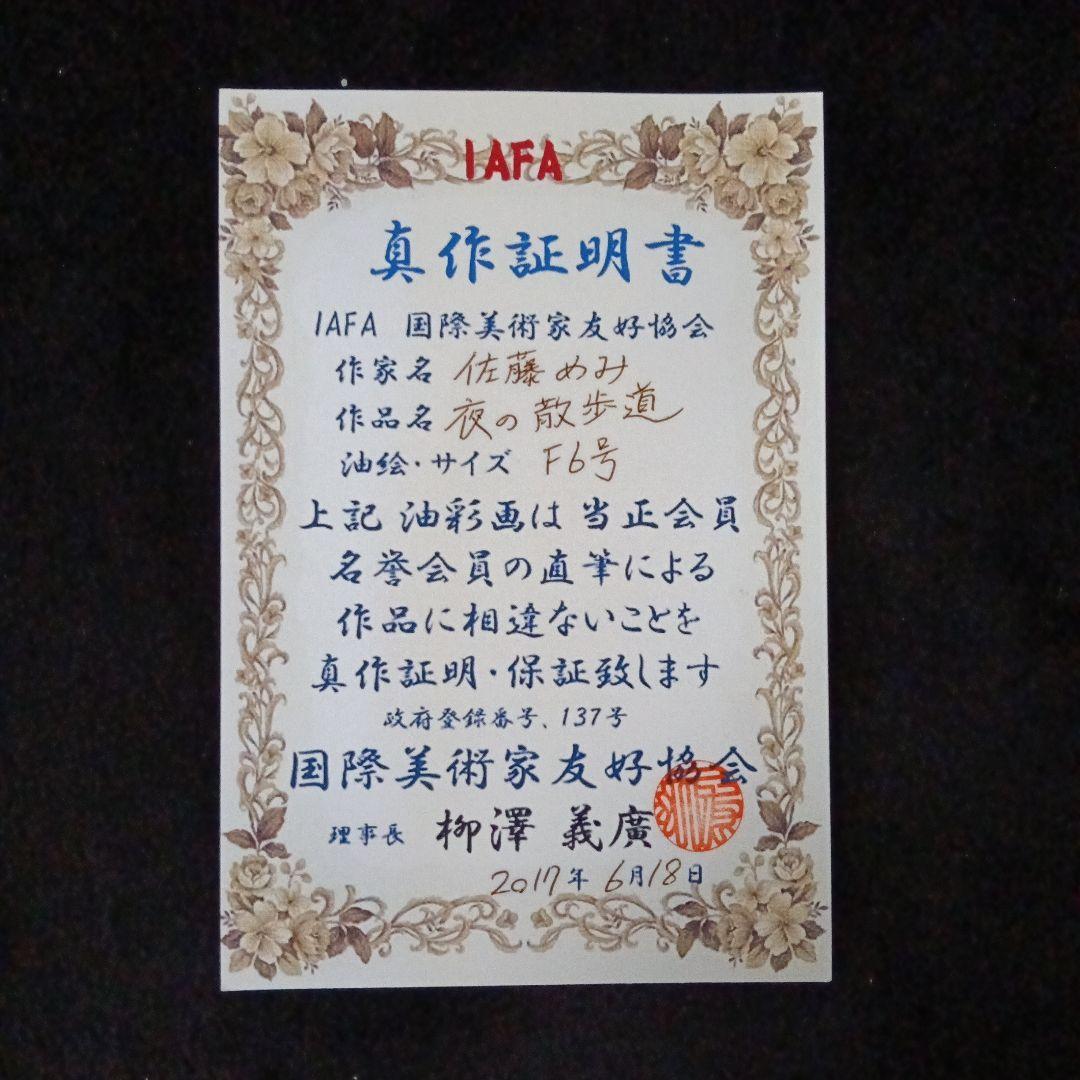 IAFA
真作証明書
IAFA 国際美術家友好協会
作家名 佐藤めみ
作品名 夜の散歩道
油絵・サイズ F6号
上記 油彩画は 当正会員
名誉会員の直筆による
作品に相違ないことを
真作証明・保証致します
政府登録番号、137号
国際美術家友好協会
理事長 柳澤 義廣
2017年 6月18日